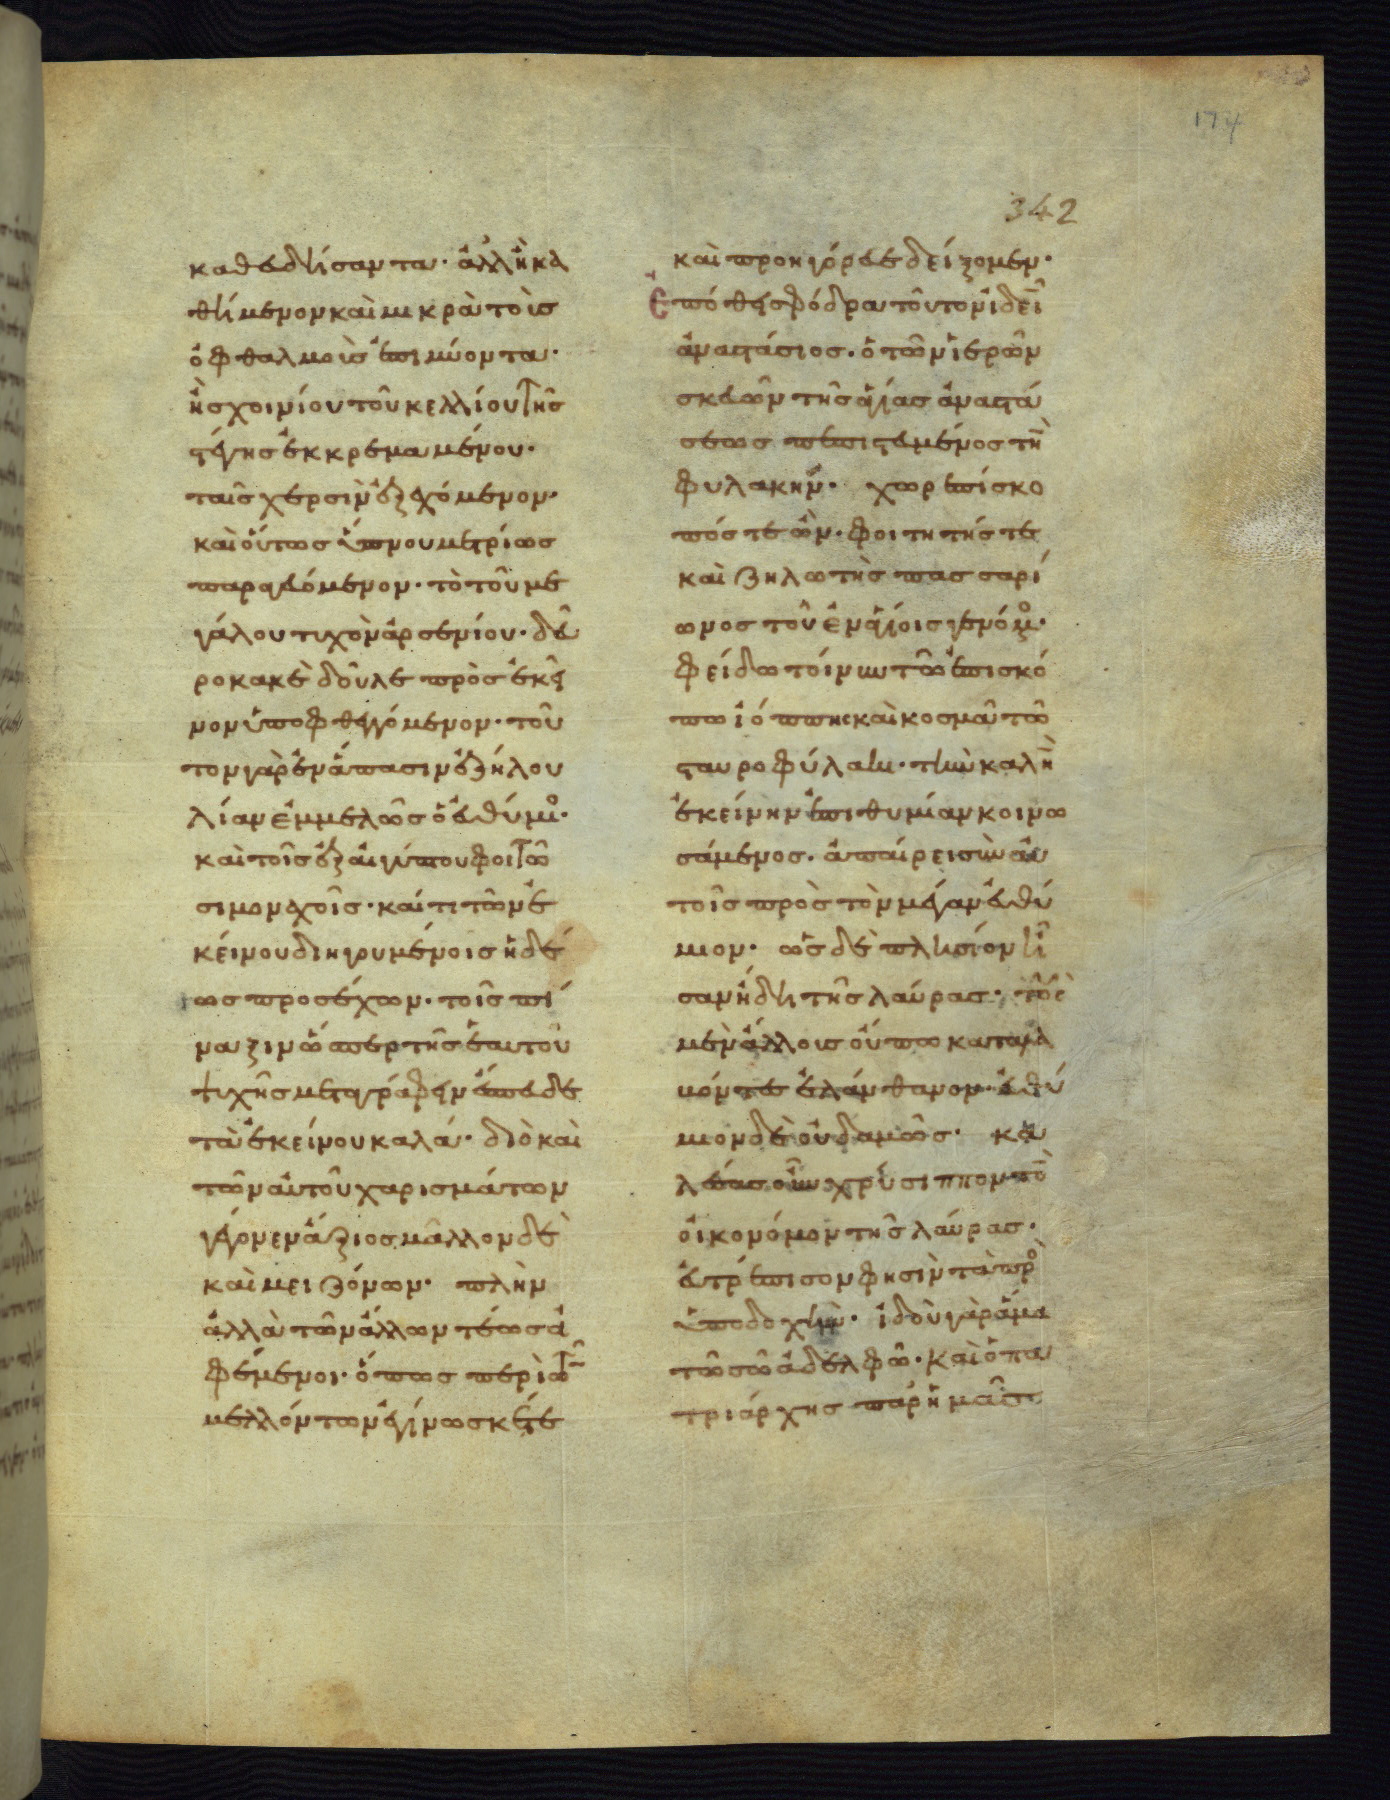 174
342
καθευδήσαντα· ἀλλ' ἢ κα
θήμενον καὶ μικρὰ τοῖς
ὀφθαλμοῖς ἐπιμύοντα·
ἢ σχοινίου τοῦ κελλίου τῆς
στέγης ἐκκρεμαμένου·
ταῖς χερσὶν ἐξεχόμενον·
καὶ οὕτως ὕπνου μετρίως
παραγευόμενον· τὸ τοῦ με
γάλου τυχὸν ἀρσενίου· δεῦ
ρο κακὲ δοῦλε πρὸς ἐκεῖ
νον ὑποφθεγγόμενον· τοῦ
τον γὰρ ἐν ἅπασιν ἐζήλου
λίαν ἐμμελῶς ὁ εὐθύμιος·
καὶ τοῖς ἐξ αἰγύπτου φοιτῶ
σι μοναχοῖς· καί τι τῶν ἐ
κείνου διηγουμένοις ἡδέ
ως προσέχων· τοῖς πί
ναξιν ὥσπερ τῆς ἑαυτοῦ
ψυχῆς μεταγράφειν ἔσπευδε
τὰ ἐκείνου καλά· διὸ καὶ
τῶν αὐτοῦ χαρισμάτων
γέγονεν ἄξιος μᾶλλον δὲ
καὶ μειζόνων· πλὴν
ἀλλὰ τῶν ἄλλων τέως ἀ
φέμενοι· ὅπως περὶ τῶν
μελλόντων ἐγίνωσκέ τε
καὶ προηγόρευε δείξομεν·
Ἐπόθει σφόδρα τοῦτον ἰδεῖν
ἀναστάσιος· ὁ τῶν ἱερῶν
σκευῶν τῆς ἁγίας ἀναστά
σεως πεπιστευμένος τὴν
φυλακήν· χωρεπίσκο
πός τε ὤν· φοιτητής τε
καὶ ζηλωτὴς πασσαρί
ωνος τοῦ ἐν ἁγίοις γενομένου·
φείδω τοίνυν τῶ ἐπισκό
πω ἰόππης καὶ κοσμᾶ τῶ
σταυροφύλακι· τὴν καλὴν
ἐκείνην ἐπιθυμίαν κοινω
σάμενος· ἀπαίρει σὺν αὐ
τοῖς πρὸς τὸν μέγαν εὐθύ
μιον· ὡς δὲ πλησίον ἦ
σαν ἤδη τῆς λαύρας· τοὺς
μὲν ἄλλους οὔπω καταφα
νέντες ἐλάνθανον· εὐθύ
μιον δὲ οὐδαμῶς· κα
λέσας οὖν χρύσιππον τὸν
οἰκονόμον τῆς λαύρας·
εὐτρέπισον φησὶν τὰ πρὸς
ὑποδοχήν· ἰδοὺ γὰρ ἅμα
τῶ σῶ ἀδελφῶ· καὶ ὁ πα
τριάρχης παρ' ἡμᾶς